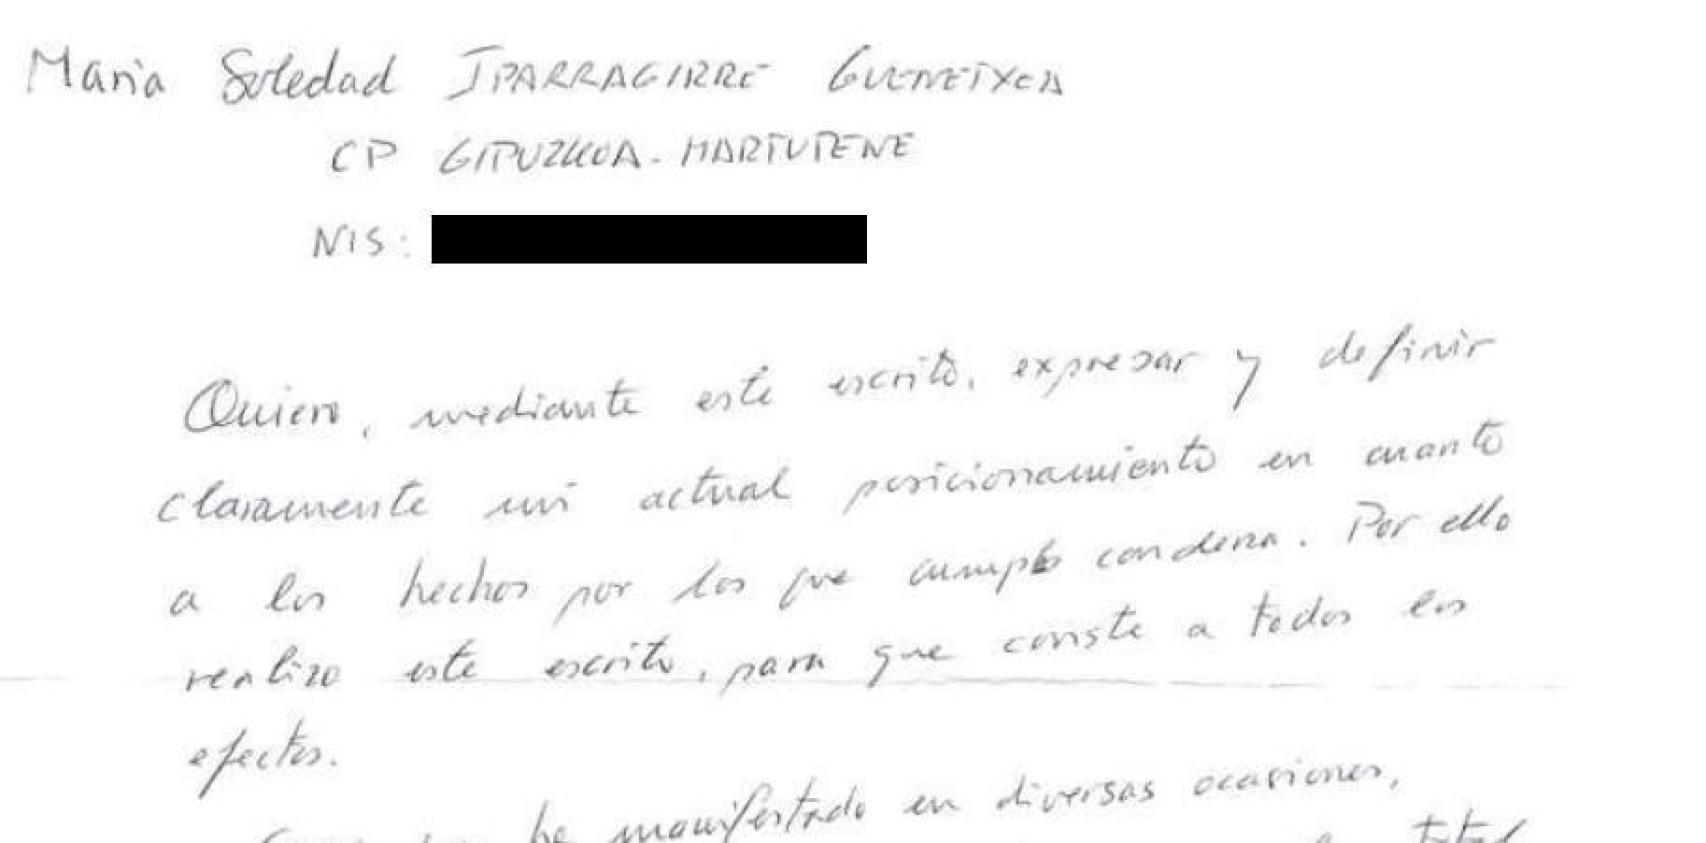 Maria Soledad IPARRAGIRRE GUENETXEA
CP GIPUZKOA - MARTUTENE
NIS:
Quiero, mediante este escrito, expresar y definir
claramente mi actual posicionamiento en cuanto
a los hechos por los que cumplo condena. Por ello
realizo este escrito, para que conste a todos los
efectos.
he manifestado en diversas ocasiones,
total